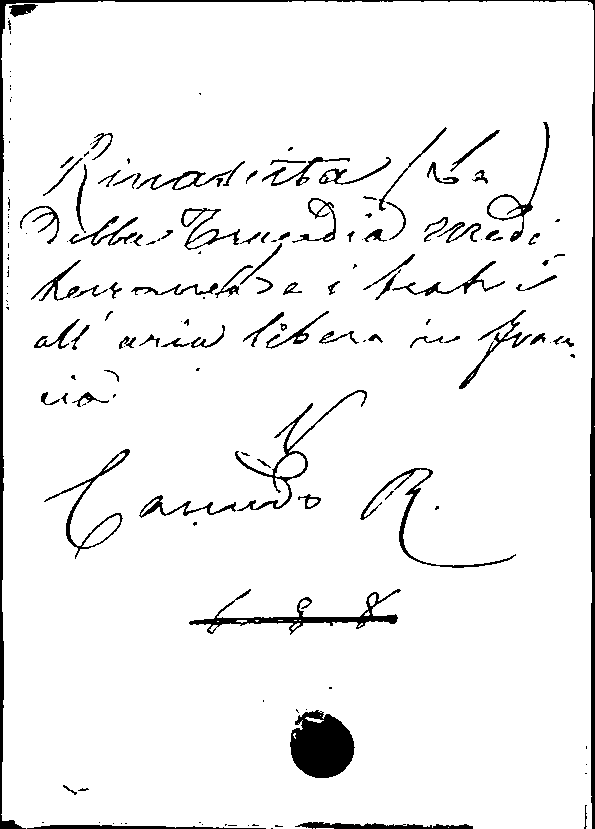 Rinascita (La)
della Tragedia Medi
terranea e i teatri
all'aria libera in Fran
cia
V
Canudo R.
6-9.8